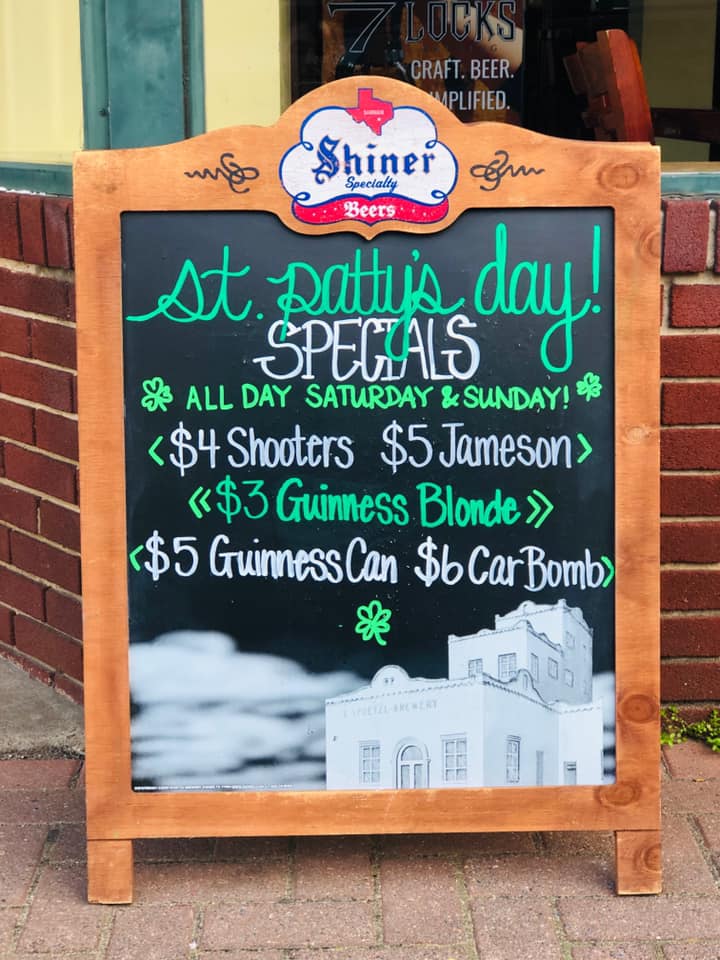 7 LOCKS
CRAFT. BEER.
Shiner
Specialty
Beers
st. patty's day!
SPECIALS
ALL DAY SATURDAY & SUNDAY!
<$4 Shooters $5 Jameson>
<<$3 Guinness Blonde>>
<$5 Guinness Can $6 Car Bomb>
SPOETZL BREWERY